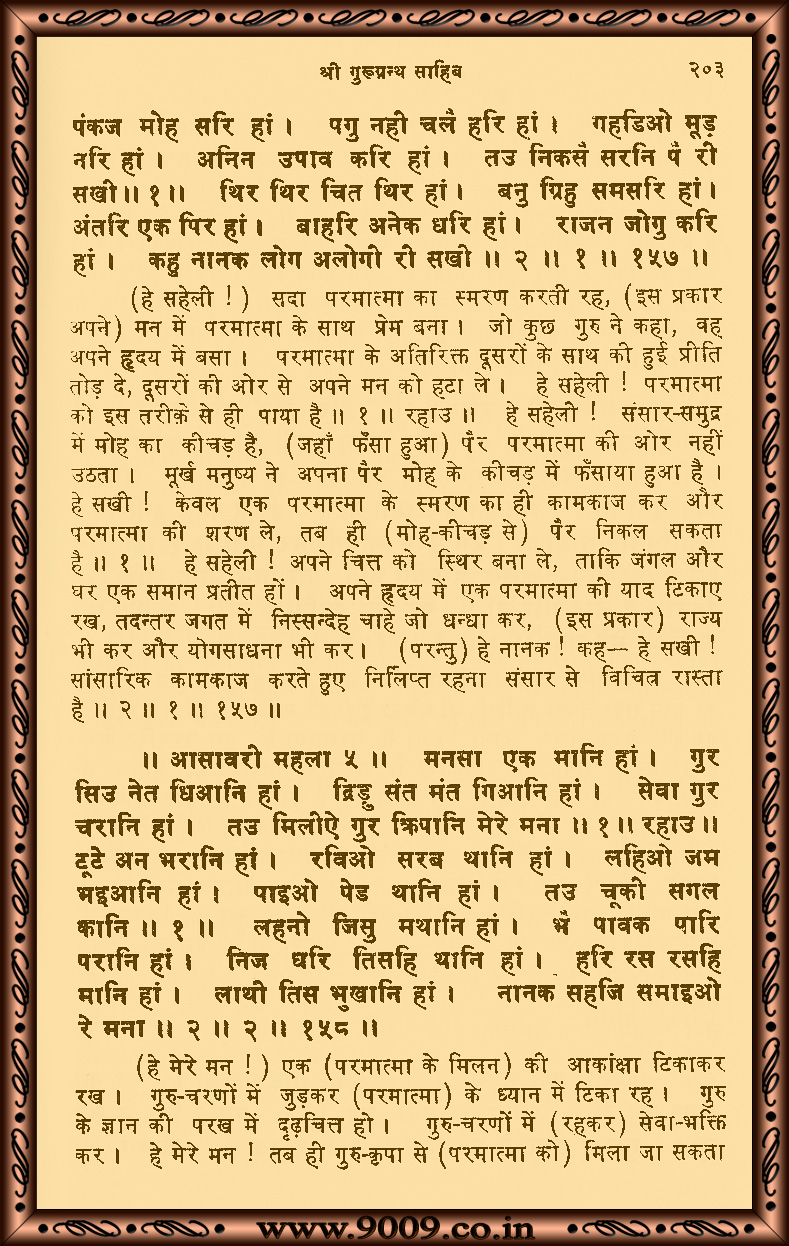 श्री गुरूग्रन्थ साहिब २०३
पंकज मोह सरि हां । पगु नही चलै हरि हां । गहडिओ मूड़
नरि हां । अनिन उपाव करि हां । तउ निकसै सरनि पै री
सखी ॥ १ ॥ थिर थिर चित थिर हां । बनु ग्रिहु समसरि हां ।
अंतरि एक पिर हां । बाहरि अनेक धरि हां । राजन जोगु करि
हां । कहु नानक लोग अलोगी री सखी ॥ २ ॥ १ ॥ १५७ ॥
(हे सहेली ! ) सदा परमात्मा का स्मरण करती रह, (इस प्रकार
अपने) मन में परमात्मा के साथ प्रेम बना । जो कुछ गुरु ने कहा, वह
अपने हृदय में बसा । परमात्मा के अतिरिक्त दूसरों के साथ की हुई प्रीति
तोड़ दे, दूसरों की ओर से अपने मन को हटा ले । हे सहेली ! परमात्मा
को इस तरीक़े से ही पाया है ॥ १ ॥ रहाउ ॥ हे सहेली ! संसार-समुद्र
में मोह का कीचड़ है, (जहाँ फँसा हुआ) पैर परमात्मा की ओर नहीं
उठता । मूर्ख मनुष्य ने अपना पैर मोह के कीचड़ में फँसाया हुआ है ।
हे सखी ! केवल एक परमात्मा के स्मरण का ही कामकाज कर और
परमात्मा की शरण ले, तब ही (मोह-कीचड़ से) पैर निकल सकता
है ॥ १ ॥ हे सहेली ! अपने चित्त को स्थिर बना ले, ताकि जंगल और
घर एक समान प्रतीत हों । अपने हृदय में एक परमात्मा की याद टिकाए
रख, तदन्तर जगत में निस्सन्देह चाहे जो धन्धा कर, (इस प्रकार) राज्य
भी कर और योगसाधना भी कर । (परन्तु) हे नानक ! कह— हे सखी !
सांसारिक कामकाज करते हुए निर्लिप्त रहना संसार से विचित्र रास्ता
है ॥ २ ॥ १ ॥ १५७ ॥
॥ आसावरी महला ५ ॥ मनसा एक मानि हां । गुर
सिउ नेत धिआनि हां । द्रिड़ु संत मंत गिआनि हां । सेवा गुर
चरानि हां । तउ मिलीऐ गुर क्रिपानि मेरे मना ॥ १ ॥ रहाउ ॥
टूटे अन भरानि हां । रविओ सरब थानि हां । लहिओ जम
भइआनि हां । पाइओ पेड थानि हां । तउ चूकी सगल
कानि ॥ १ ॥ लहनो जिसु मथानि हां । भै पावक पारि
परानि हां । निज घरि तिसहि थानि हां । हरि रस रसहि
मानि हां । लाथी तिस भुखानि हां । नानक सहजि समाइओ
रे मना ॥ २ ॥ २ ॥ १५८ ॥
(हे मेरे मन ! ) एक (परमात्मा के मिलन) की आकांक्षा टिकाकर
रख । गुरु-चरणों में जुड़कर (परमात्मा) के ध्यान में टिका रह । गुरु
के ज्ञान की परख में दृढ़चित्त हो । गुरु-चरणों में (रहकर) सेवा-भक्ति
कर । हे मेरे मन ! तब ही गुरु-कृपा से (परमात्मा को) मिला जा सकता
www.9009.co.in